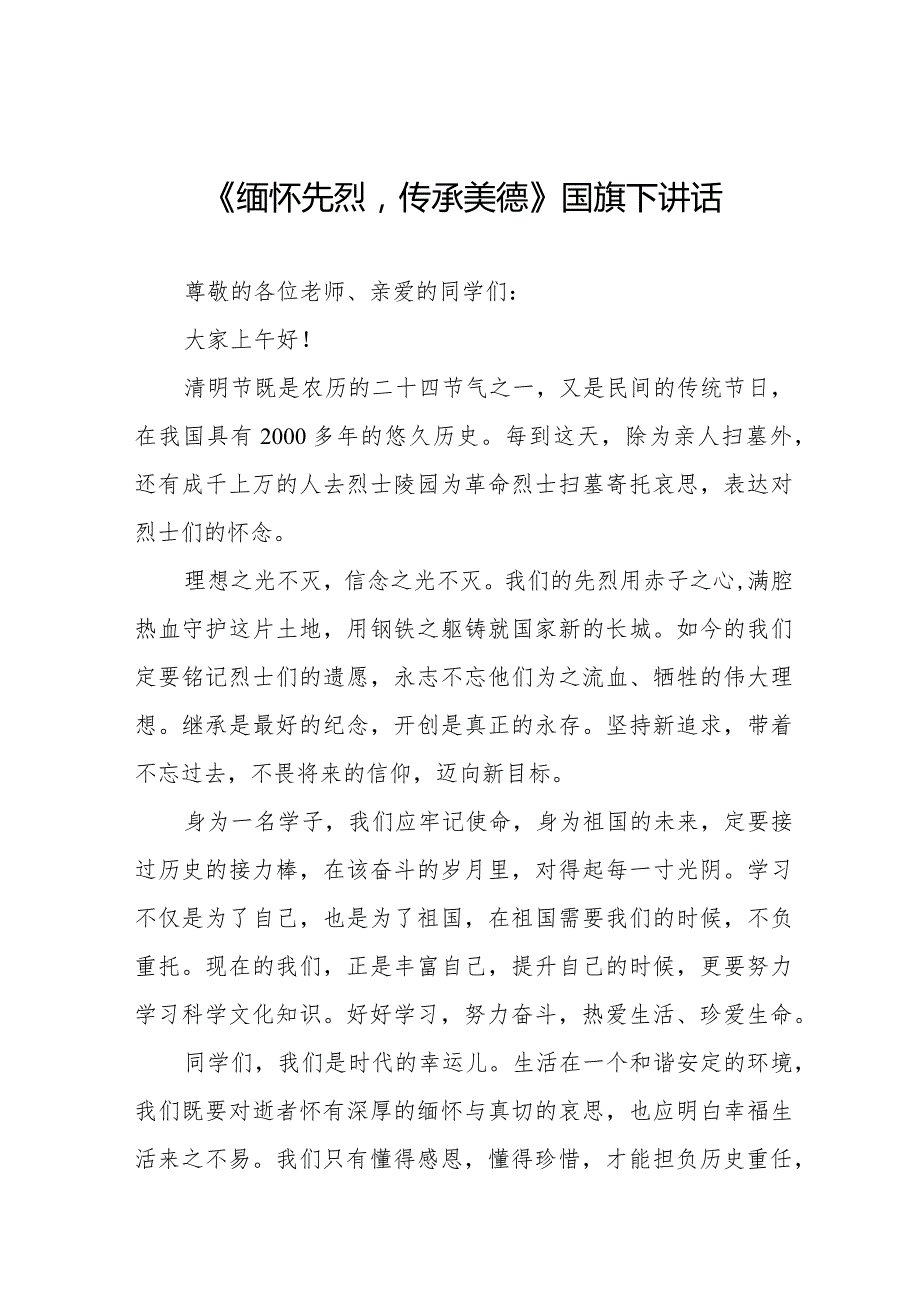 《缅怀先烈，传承美德》国旗下讲话
尊敬的各位老师、亲爱的同学们：
大家上午好！
清明节既是农历的二十四节气之一，又是民间的传统节日，
在我国具有 2000 多年的悠久历史。每到这天，除为亲人扫墓外，
还有成千上万的人去烈士陵园为革命烈士扫墓寄托哀思，表达对
烈士们的怀念。
理想之光不灭，信念之光不灭。我们的先烈用赤子之心,满腔
热血守护这片土地，用钢铁之躯铸就国家新的长城。如今的我们
定要铭记烈士们的遗愿，永志不忘他们为之流血、牺牲的伟大理
想。继承是最好的纪念，开创是真正的永存。坚持新追求，带着
不忘过去，不畏将来的信仰，迈向新目标。
身为一名学子，我们应牢记使命，身为祖国的未来，定要接
过历史的接力棒，在该奋斗的岁月里，对得起每一寸光阴。学习
不仅是为了自己，也是为了祖国，在祖国需要我们的时候，不负
重托。现在的我们，正是丰富自己，提升自己的时候，更要努力
学习科学文化知识。好好学习，努力奋斗，热爱生活、珍爱生命。
同学们，我们是时代的幸运儿。生活在一个和谐安定的环境，
我们既要对逝者怀有深厚的缅怀与真切的哀思，也应明白幸福生
活来之不易。我们只有懂得感恩，懂得珍惜，才能担负历史重任，